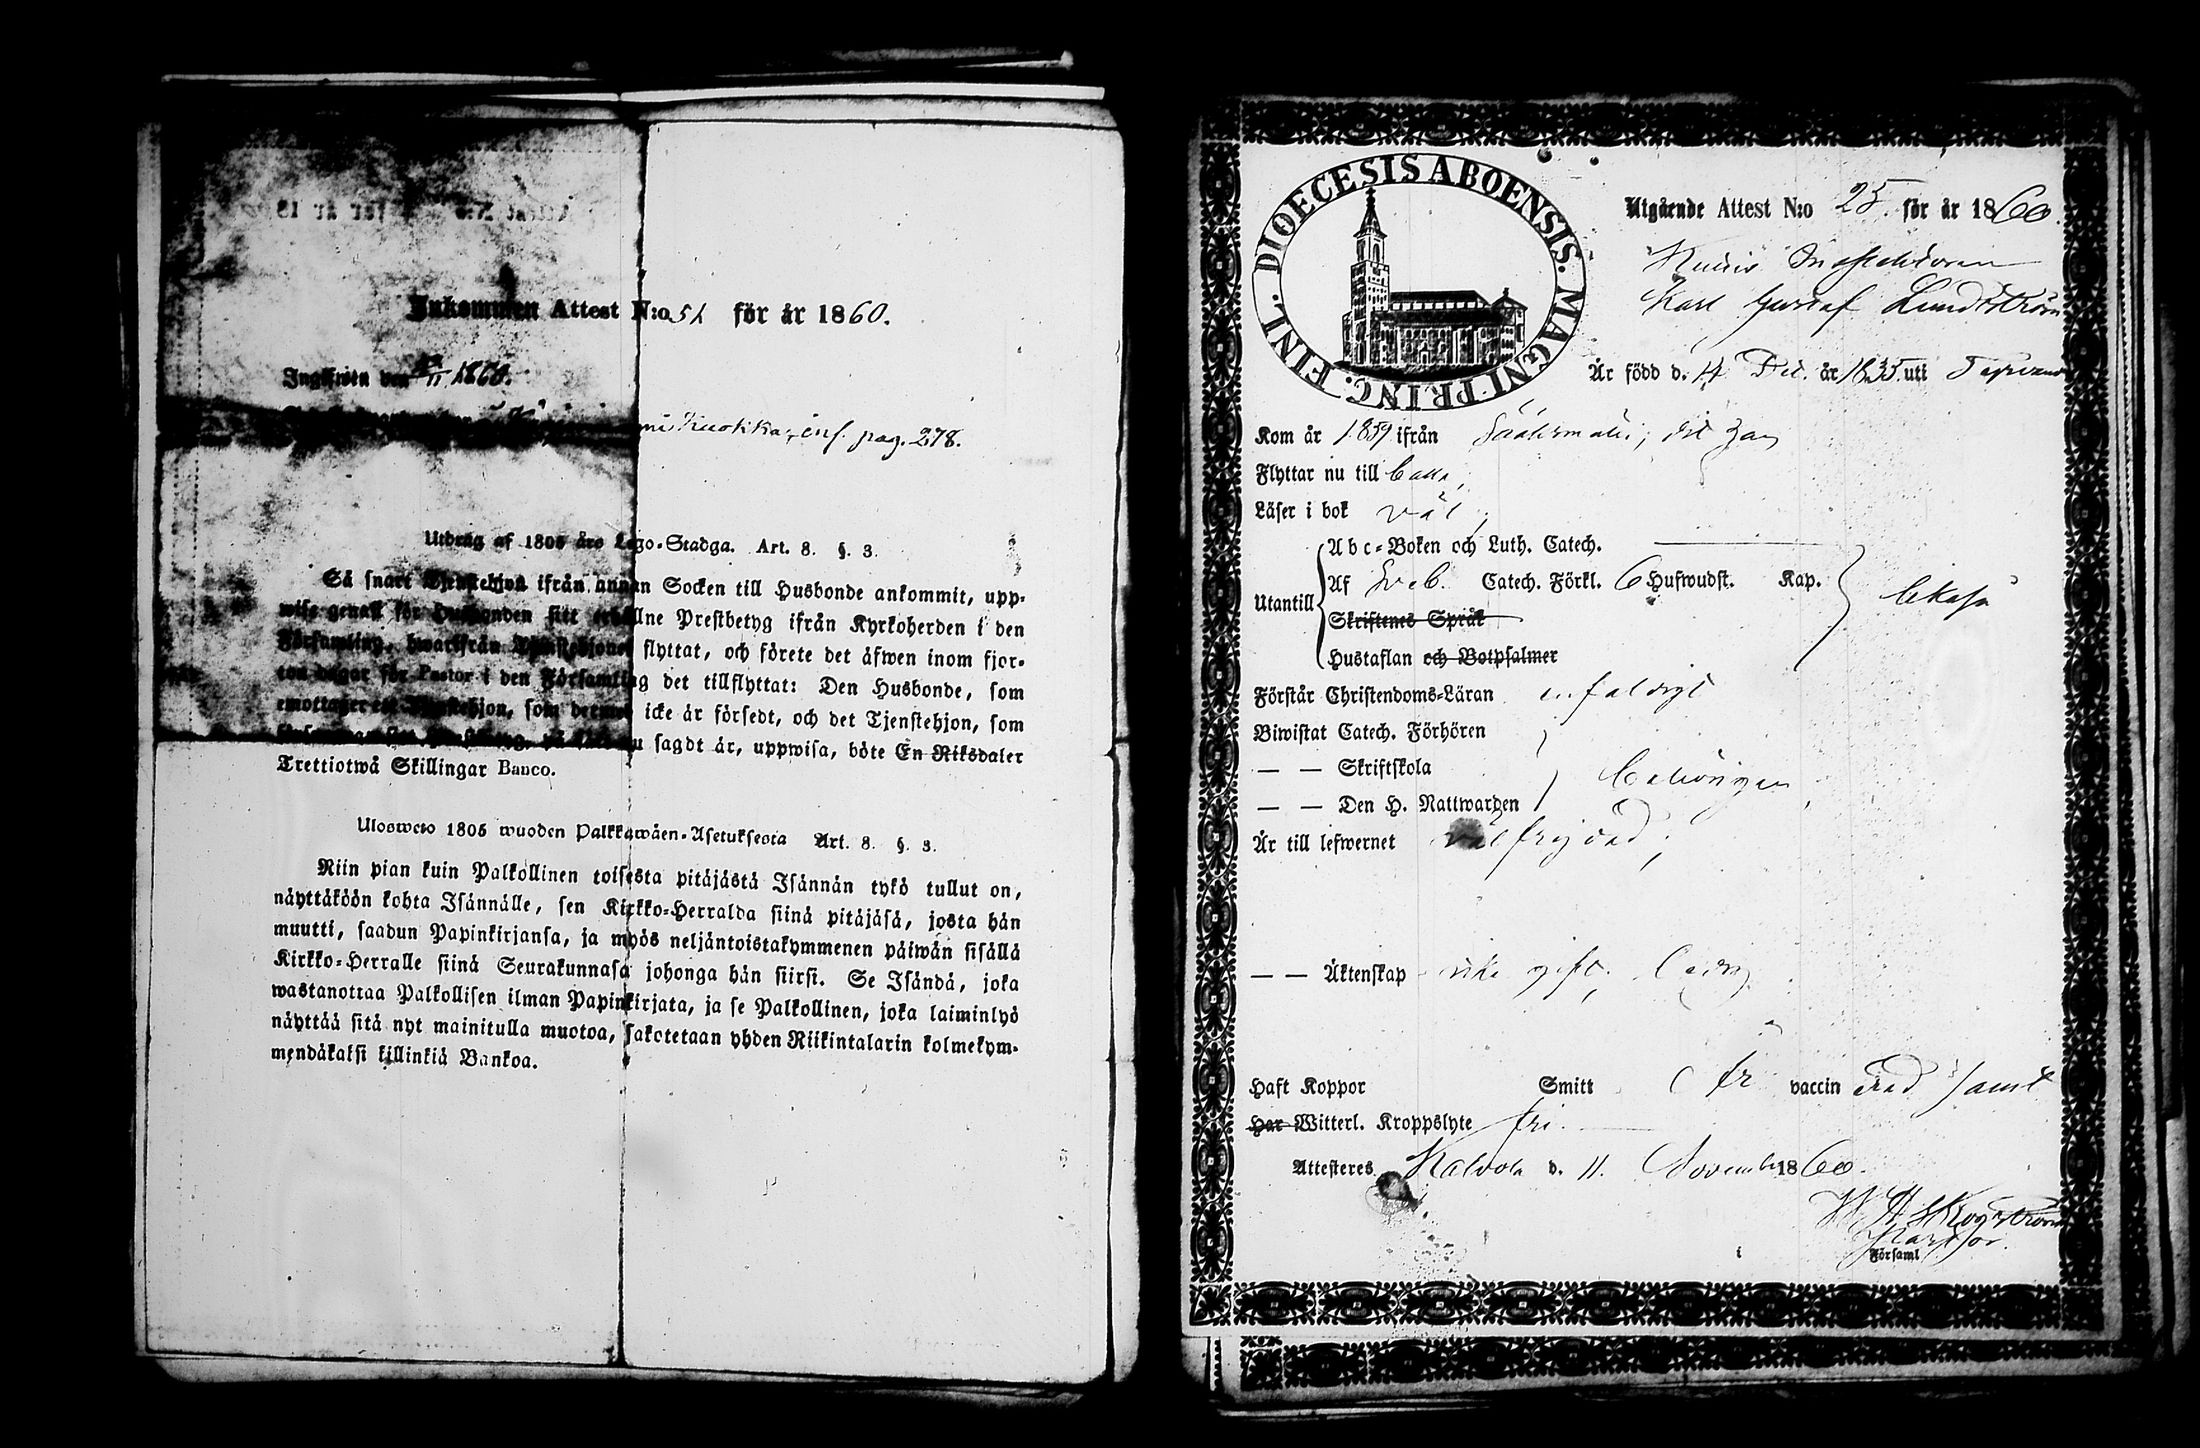 Inkommen Attest N:o 51 för år 1860.
Ingifwen den 11 1860.
inf. pag. 278.
Utdrag af 1805 års Lego-Stadga. Art. 8. §. 3.
Så snart Tjenstehjon ifrån annan Socken till Husbonde ankommit, upp-
wise genast för Husbonden sitt erhållne Prestbetyg ifrån Kyrkoherden i den
Församling, hwarifrån Tjenstehjonet flyttat, och förete det äfwen inom fjor-
ton dagar för Pastor i den Församling det tillflyttat: Den Husbonde, som
emottager ett Tjenstehjon, som dermed icke är försedt, och det Tjenstehjon, som
sagdt är, uppwisa, böte En Riksdaler
Trettiotwå Skillingar Banco.
Ulosweto 1805 wuoden Palkkawäen-Asetuksesta Art. 8. §. 3.
Niin pian kuin Palkollinen toisesta pitäjästä Isännän tykö tullut on,
näyttäköön kohta Isännälle, sen Kirkko-Herralda siinä pitäjäsä, josta hän
muutti, saadun Papinkirjansa, ja myös neljäntoistakymmenen päiwän sisällä
Kirkko-Herralle siinä Seurakunnasa johonga hän siirsi. Se Isändä, joka
wastanottaa Palkollisen ilman Papinkirjata, ja se Palkollinen, joka laiminlyö
näyttää sitä nyt mainitulla muotoa, sakotetaan yhden Riikintalarin kolmekym-
mendäkaksi killinkiä Bankoa.
DIOECESIS ABOENSIS. MAGNI PRINC. FINL.
Utgående Attest N:o 25. för år 1860.
Inspektoren
Karl Gustaf Lundström
Är född d. 14 Dec. år 1835 uti
Kom år 1859 ifrån
Flyttar nu till
Läser i bok väl;
Abc-Boken och Luth. Catech.
Utantill
Af Sveb. Catech. Förkl. 6 Hufwudst. Kap.
Skriftenes Språk
Hustaflan och Botpsalmer
Förstår Christendoms-Läran enfaldigt
Biwistat Catech. Förhören
— — Skriftskola
— — Den H. Nattwarden
behörigen
Är till lefwernet välfrejdad;
— — Äktenskap icke gift, ledig
Haft Koppor Smitt vaccin
Har Witterl. Kroppslyte fri.
Attesteres Kalvola d. 11. November 1860.
Pastor.
i Församl